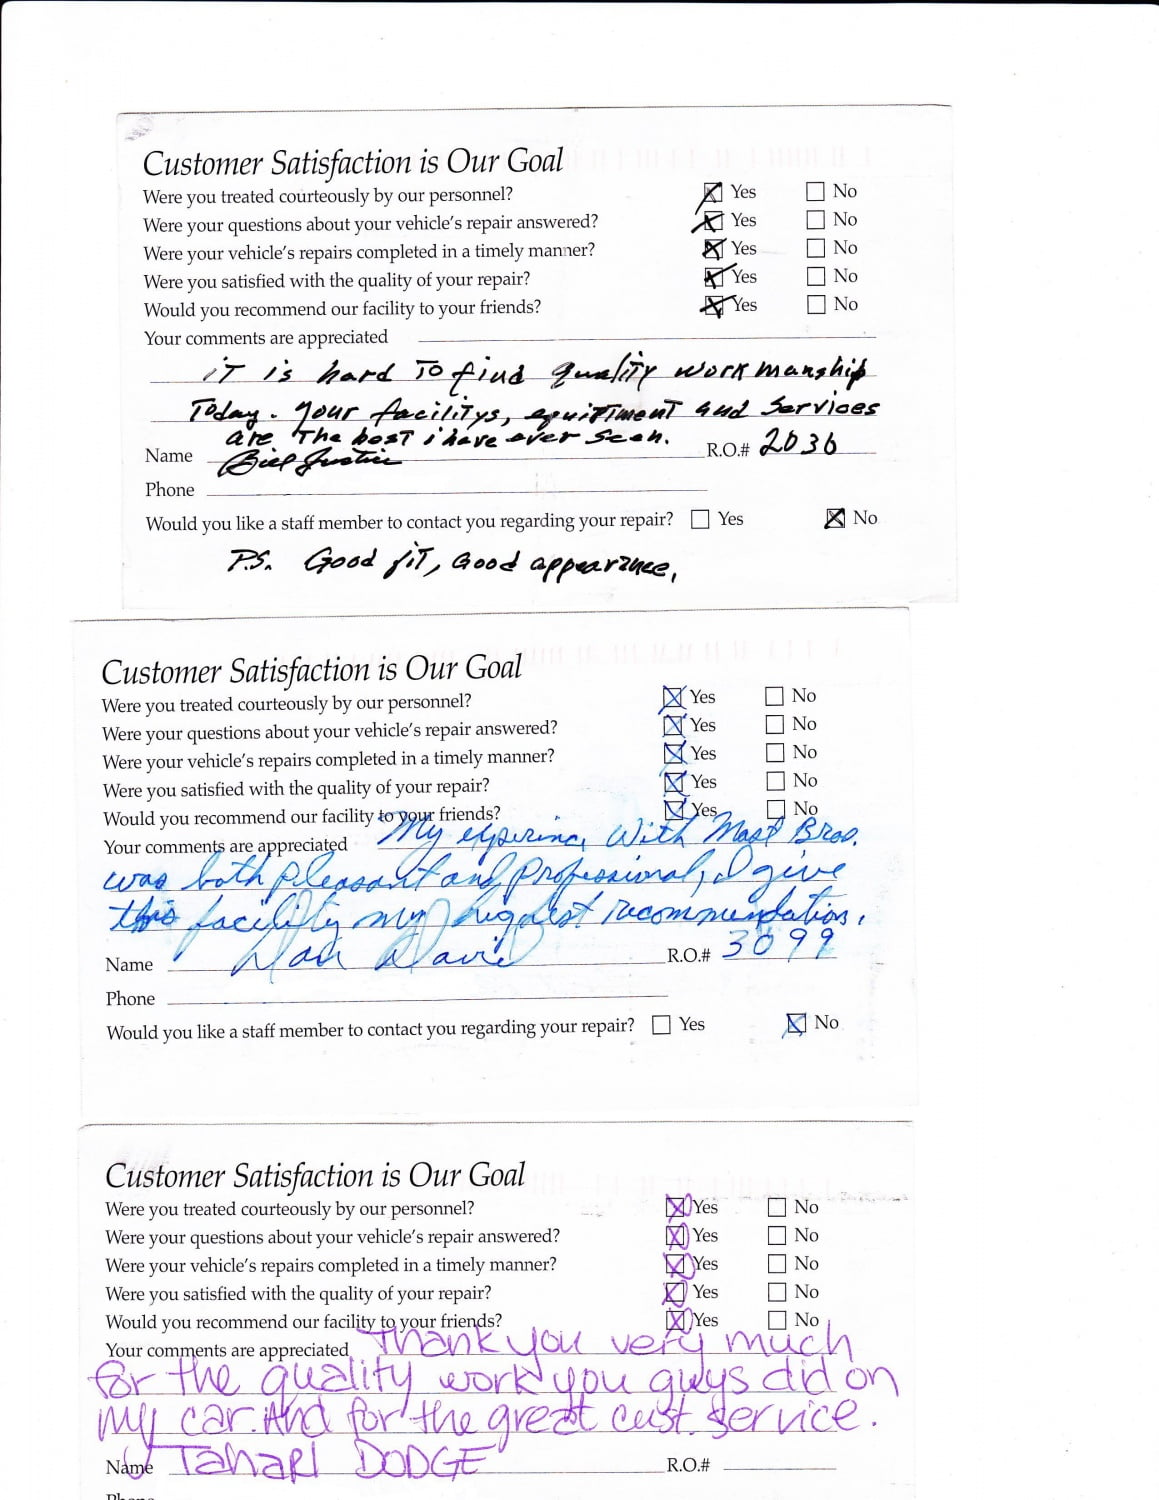 Customer Satisfaction is Our Goal
Were you treated courteously by our personnel? Yes No
Were your questions about your vehicle's repair answered? Yes No
Were your vehicle's repairs completed in a timely manner? Yes No
Were you satisfied with the quality of your repair? Yes No
Would you recommend our facility to your friends? Yes No
Your comments are appreciated
iT is hard To find quality workmanship
Today. Your facilitys, equiptment and Services
are The best i have ever seen.
Name Bill Justice R.O.# 2036
Phone
Would you like a staff member to contact you regarding your repair? Yes No
P.S. Good fiT, Good appearance,
Customer Satisfaction is Our Goal
Were you treated courteously by our personnel? Yes No
Were your questions about your vehicle's repair answered? Yes No
Were your vehicle's repairs completed in a timely manner? Yes No
Were you satisfied with the quality of your repair? Yes No
Would you recommend our facility to your friends? Yes No
Your comments are appreciated My With Mast Bros.
was both pleasant and professional, I give
this facility my highest recommendation,
Name Dan Davis R.O.# 3099
Phone
Would you like a staff member to contact you regarding your repair? Yes No
Customer Satisfaction is Our Goal
Were you treated courteously by our personnel? Yes No
Were your questions about your vehicle's repair answered? Yes No
Were your vehicle's repairs completed in a timely manner? Yes No
Were you satisfied with the quality of your repair? Yes No
Would you recommend our facility to your friends? Yes No
Your comments are appreciated Thank you very much
for the quality work you guys did on
my car. And for the great cust. service.
Name TaHARI DODGE R.O.#